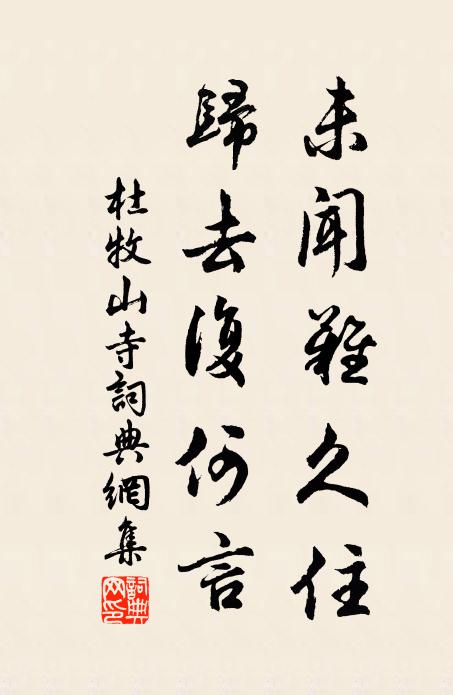 未聞難久住
歸去復何言
杜牧山寺詞典網集
詞典網印